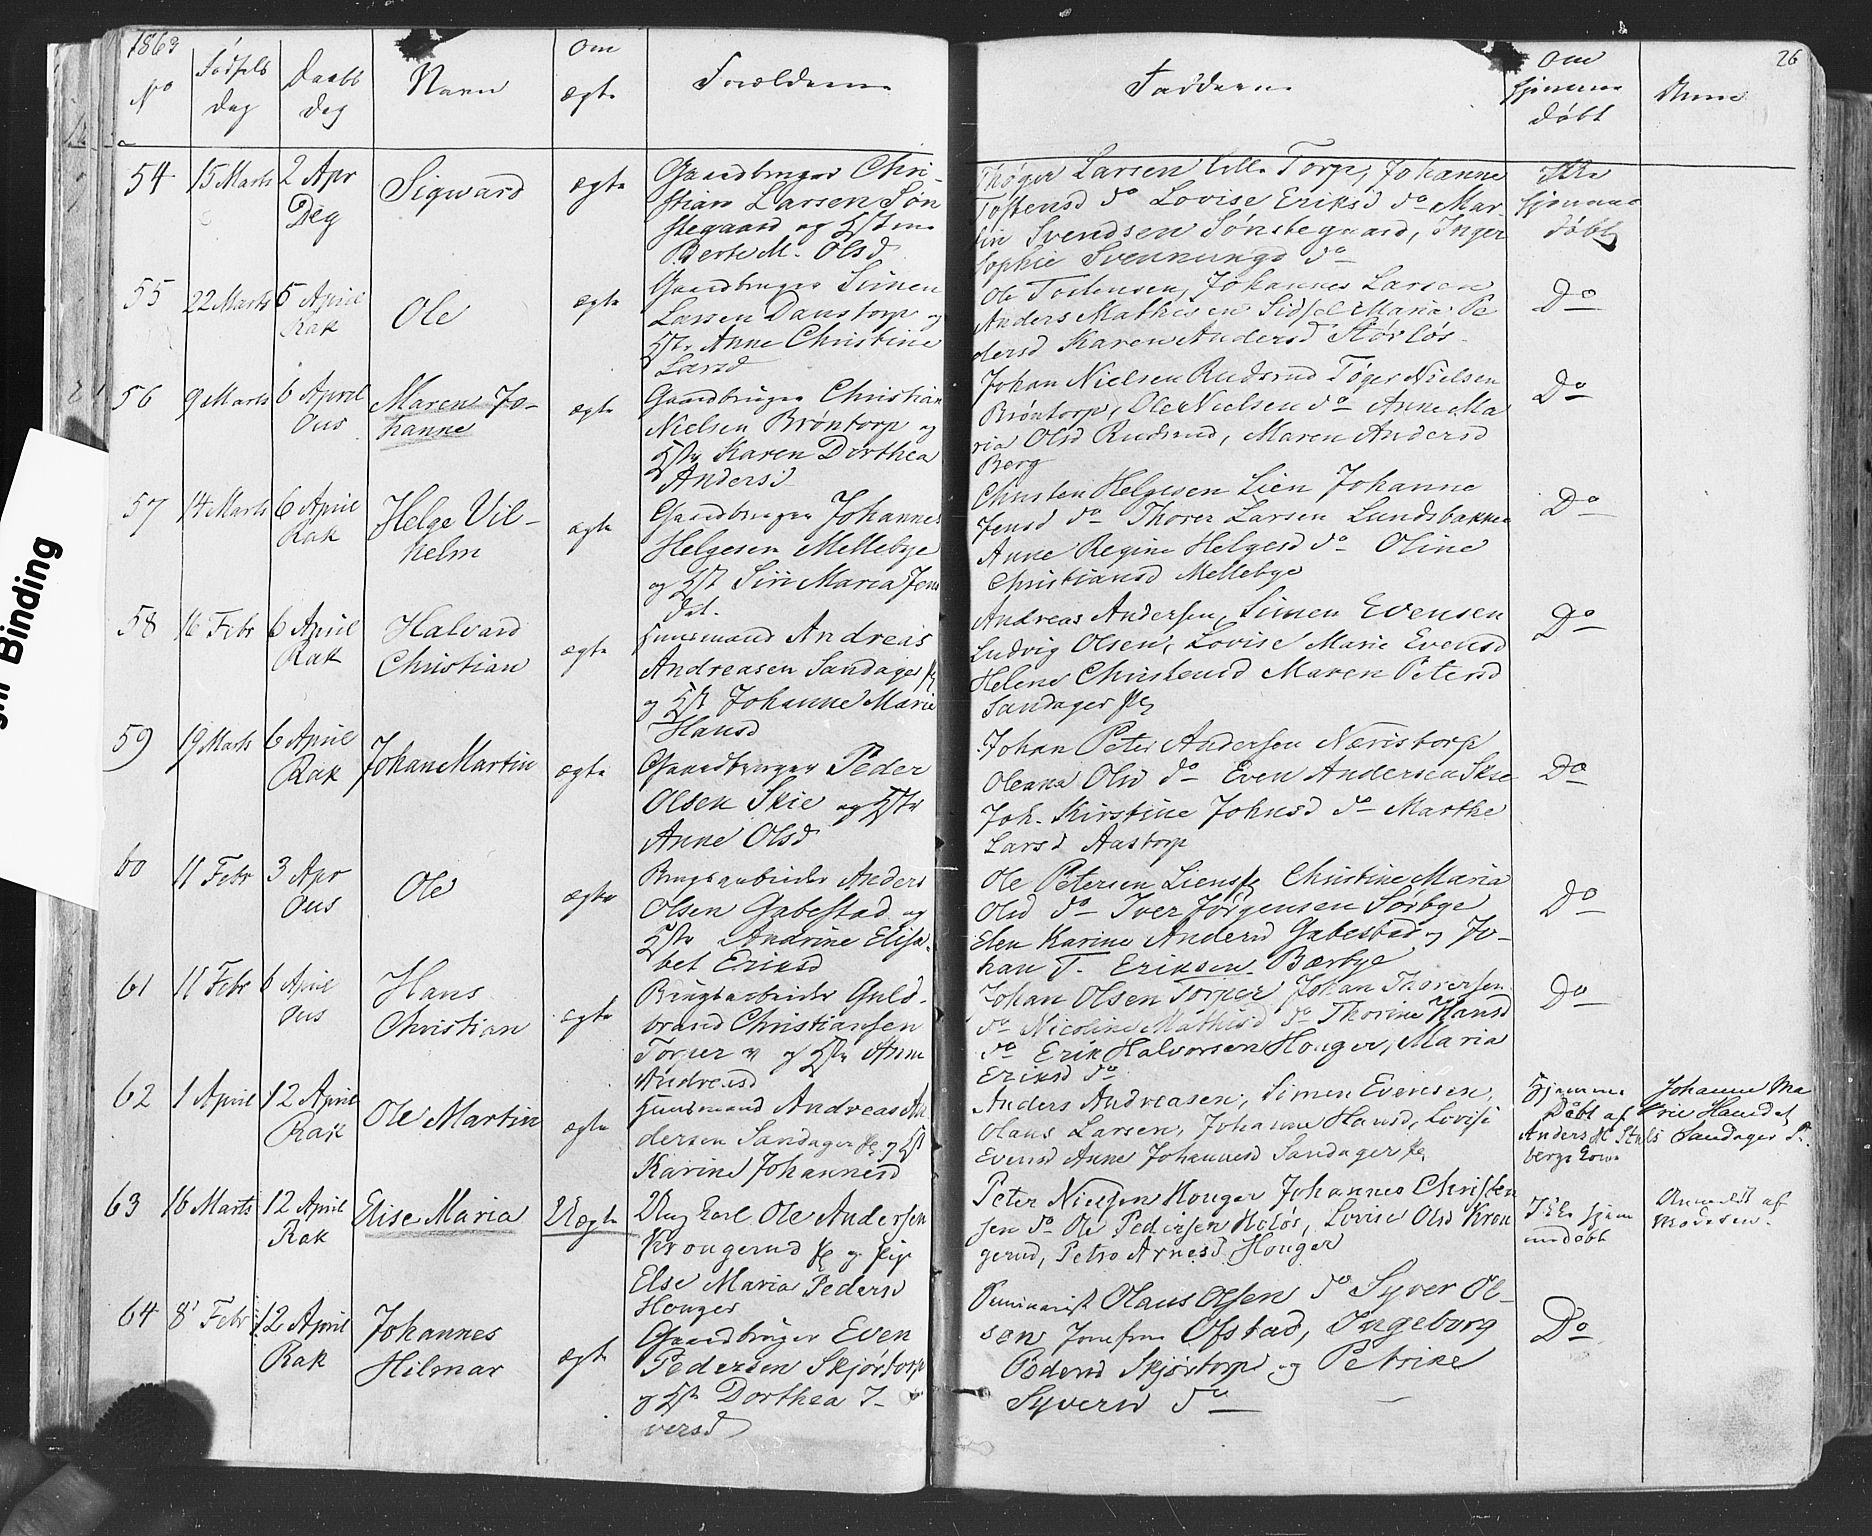 1863
26
No
Fødsels
Dag
Daabs
Dag
Navn
Om
ægte
Forældrene
Fadderne
Om
hjemme
døbt
Anm
54
15 Marts
2 Apr
Deg
Sigward
ægte
Gaardbruger Chri-
stian Larsen Søn
stegaard og Hstru
Berte M. Olsd
Thøger Larsen Lille Torp, Johanne
Tostensd do Lovise Eriksd do Mar-
tin Svendsen Sønstegaard, Inger
Sophie Svennungsd do
Ikke
hjemme
døbt
55
22 Marts
5 April
Rak
Ole
ægte
Gaardbruger Simen
Larsen Danstorp og
Hstr Anne Christine
Larsd
Ole Tostensen, Johannes Larsen
Anders Mathisen Sidsel Maria Pe
dersd Karen Andersd Størløs
Do
56
9 Marts
6 April
Ous
Maren Jo-
hanne
ægte
Gaardbruger Christian
Nielsen Brøntorp og
Hstr Karen Dorthea
Andersd
Johan Nielsen Rudsrud Tøger Nielsen
Brøntorp, Ole Nielsen do Anne Ma
ria Olsd Rudsrud, Maren Andersd
Berg
Do
57
14 Marts
6 April
Rak
Helge Vil-
helm
ægte
Gaardbruger Johannes
Helgesen Mellebye
og Hst Siri Maria Jens
dat.
Christen Helgesen Lien Johanne
Jensd do Thorer Larsen Lundsbakken
Anne Regine Helgesd do Oline
Christiansd Mellebye
Do
58
16 Febr
6 April
Rak
Halvard
Christian
ægte
Huusmand Andreas
Andreasen Sandager
og Hst Johanne Marie
Hansd
Andreas Andersen, Simen Evensen
Ludvig Olsen, Lovise Marie Evensd
Helene Christensd Maren Petersd
Sandager
Do
59
19 Marts
6 April
Rak
Johan Martin
ægte
Gaardbruger Peder
Olsen Skie og Hstr
Anne Olsd
Johan Peter Andersen Næristorp
Oleana Olsd do Even Andersen Skie
Joh. Kirstine Johnsd do Marthe
Larsd Aastorp
Do
60
11 Febr
3 Apr
Ous
Ole
ægte
Brugsarbeider Anders
Olsen Gabestad og
Hstr Andrine Elisa-
bet Eriksd
Ole Petersen Liens Christine Maria
Olsd do Iver Jørgensen Sørbye
Elen Karine Andersd Gabestad og Jo-
han T. Eriksen Bærbye
Do
61
11 Febr
6 April
Ous
Hans
Christian
ægte
Brugsarbeider Guld-
brand Christiansen
Torper og Hstr Anne
Andreasd
Johan Olsen Torper Johan Thorersen
do Nicoline Mathisd do Thorine Hansd
do Erik Halvorsen Houger, Maria
Eriksd do
Do
62
1 April
12 April
Rak
Ole Martin
ægte
Huusmand Andreas An
dersen Sandager og Hst
Karine Johannesd
Anders Andreasen, Simen Evensen,
Olaus Larsen, Johanne Hansd, Lovise
Evensd Anne Johannesd Sandager
Hjemme
Døbt af
Anders M Stuls
bergs Kone
Johanne Ma
rie Hansdt
Sandager
63
16 Marts
12 April
Rak
Elise Maria
Uægte
Ung Karl Ole Andersen
Krougerud og Pige
Else Maria Pedersd
Houger
Peter Nielsen Houger Johannes Christen
sen do Ole Pedersen Holøs, Lovise Olsd Krou
gerud, Petro Arnesd Houger
Ikke hjem
medøbt
Anmeldt af
Moderen.
64
8 Febr
12 April
Rak
Johannes
Hilmar
ægte
Gaardbruger Even
Pedersen Skjørtorp
og Hstr Dorthea I-
versd
Seminarist Olaus Olsen do Syver Ol-
sen Jomfru Ofstad, Ingeborg
Pedersd Skjørtorp og Petrine
Syversd do
Do
Binding